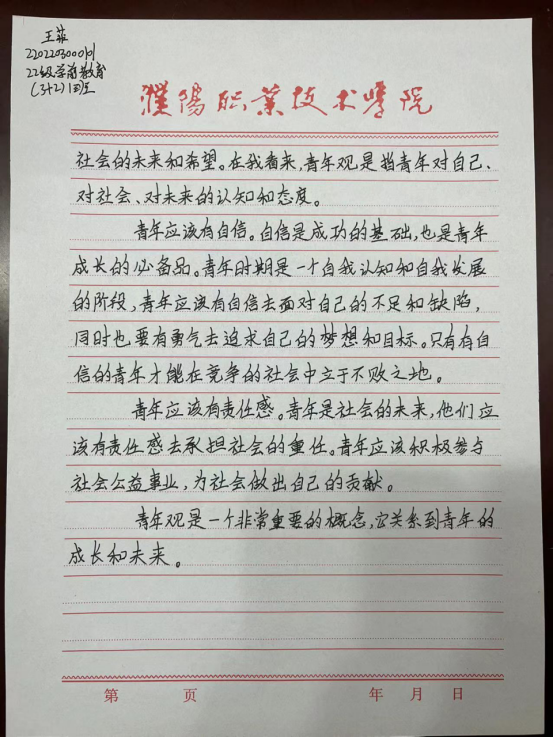 王菲
22级学前教育
(3+2)1班
濮阳职业技术学院
社会的未来和希望。在我看来,青年观是指青年对自己、
对社会、对未来的认知和态度。
青年应该有自信。自信是成功的基础,也是青年
成长的必备品。青年时期是一个自我认知和自我发展
的阶段,青年应该有自信去面对自己的不足和缺陷,
同时也要有勇气去追求自己的梦想和目标。只有有自
信的青年才能在竞争的社会中立于不败之地。
青年应该有责任感。青年是社会的未来,他们应
该有责任感去承担社会的重任。青年应该积极参与
社会公益事业,为社会做出自己的贡献。
青年观是一个非常重要的概念,它关系到青年的
成长和未来。
第 页 年 月 日